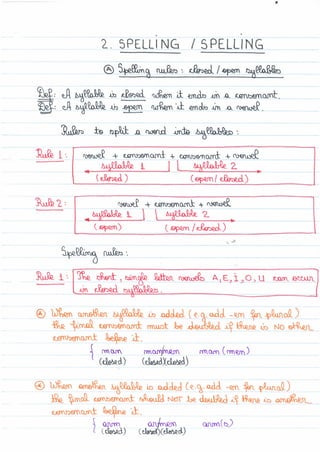 2. SPELLING / SPELLING
Ⓐ Spelling rules : closed / open syllables
Def : A syllable is closed when it ends in a consonant.
Def : A syllable is open when it ends in a vowel.
Rules to split a word into syllables :
Rule 1 : vowel + consonant + consonant + vowel
syllable 1 ] [ syllable 2
(closed) (open / closed)
Rule 2 : vowel + consonant + vowel
syllable 1 ] [ syllable 2
(open) (open / closed)
Spelling rules :
Rule 1 : The short, single letter vowels A, E, I, O, U can occur
in closed syllables.
When another syllable is added (e.g. add -en for plural)
the final consonant must be doubled if there is NO other
consonant before it.
man man/nen man (men)
(closed) (closed)(closed)
When another syllable is added (e.g. add -en for plural)
the final consonant should NOT be doubled if there is another
consonant before it.
arm ar/men arm(s)
(closed) (closed)(closed)